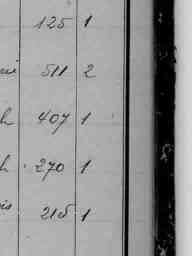 125 1
511 2
407 1
h 270 1
215 1